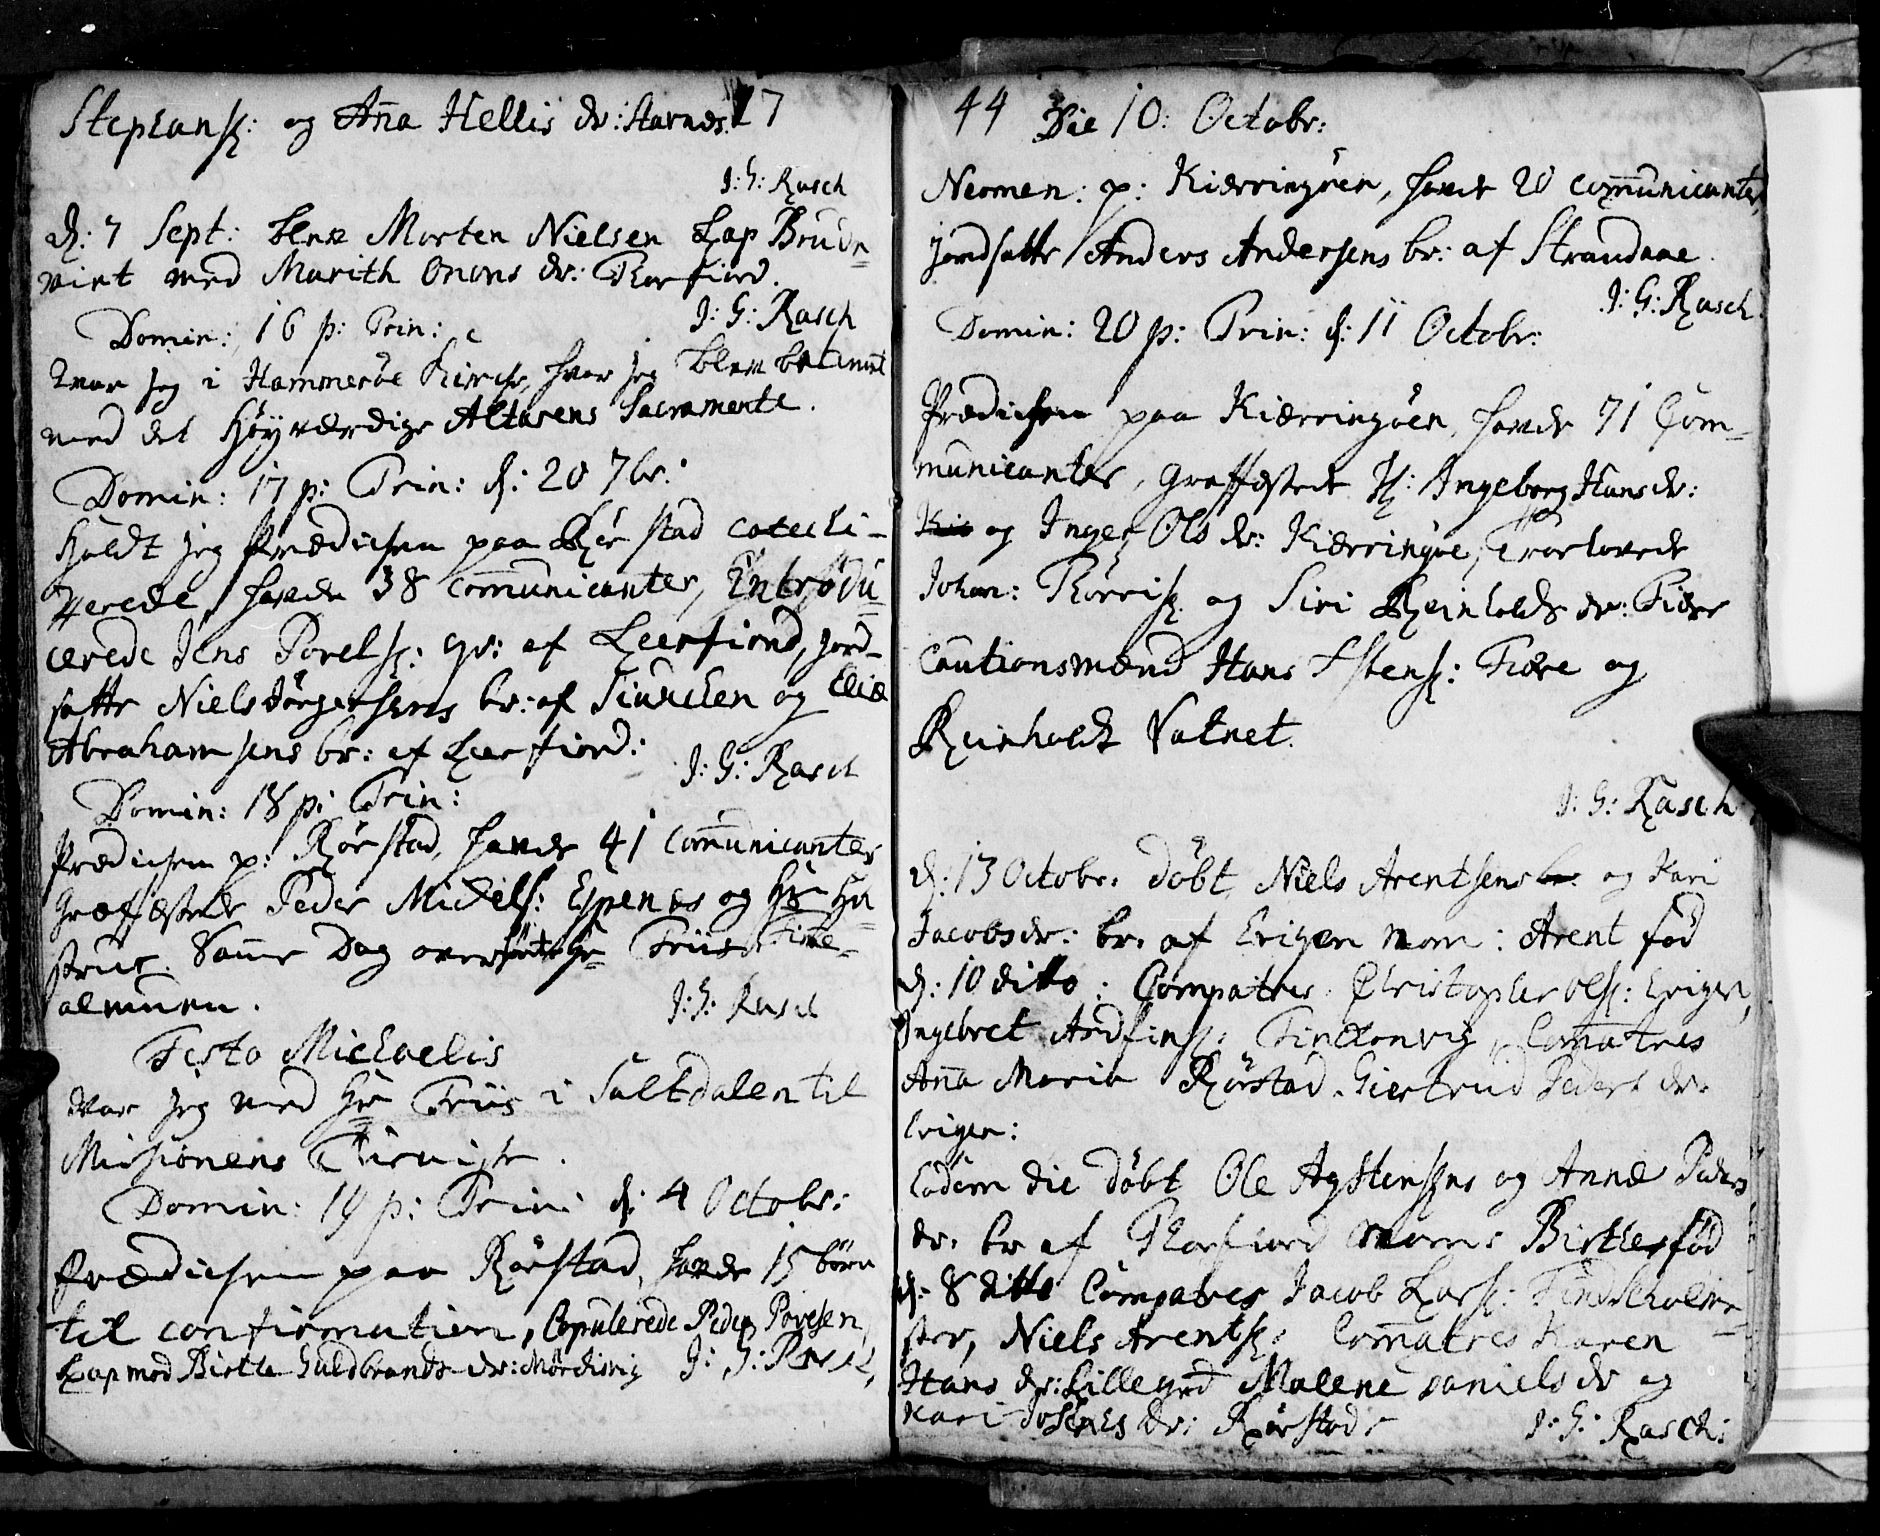 Stephans: og Aña Hellis dr: Starnes 17
J: G: Rasch
d: 7 Sept: blev Morten Nielsen Lap Brude
viet med Marith Onons dr: Thorfiord.
Domin: 16 p: Trin:
J: G: Rasch
var jeg i Hammeröe Kirche, hvor jeg blev betient
med det Höyværdige Altarens Sacramente.
Domin: 17 p: Trin: d: 20 7br:
Holdt jeg Prædichen paa Rörstad catechi-
zerede, havde 38 com̃unicanter, Introdu-
cerede Jens Povels: qv: af Leerfiord, jord-
satte Niels Jörgensens br: af og Eliæ
Abrahamsens br: af Leerfiord:
J: G: Rasch
Domin: 18 p: Trin:
Prædichen p: Rörstad, havde 41 Com̃unicanter
Græffæstede Peder Michels: Espenes og Hs Hu
strue. Sam̃e Dag Hr Friis Fiske-
almuen.
J: G: Rasch
Festo Michaelis
var jeg med Hr Friis i Saltdalen til
Missionens Tieniste.
Domin: 19 p: Trin: d: 4 Octobr:
Prædichen paa Rörstad, havde 15 börn
til confirmation, Copulerede Peder Povesen
Lap med Birthe Guldbrands dr: Mördisvig J: G: Rasch

44 Die 10: Octobr:
Nesmen: p: Kierringöen, havde 20 com̃unicanter,
jordsatte Anders Andersens br: af Strandaae.
J: G: Rasch
Domin: 20 p: Trin: d: 11 Octobr:
Prædichen paa Kierringöen, havde 71 Com-
municanter, græffæstede Ingeborg Hansdr:
og Inger Ols dr: Kierringöe, Trorlovede
Johan: Thorris: og Siri Reinholds dr: Fiære
Cautionsmænd Hans Fiære og
Reinholdt Vatnet.
J: G: Rasch
d: 13 Octobr: döbt Niels Arentsens og Kari
Jacobsdr: br. af Erigen nom: Arent föd
d: 10 ditto: Compatres Christopher Ols: Erigen,
Ingebret Andfins: Findtonvig, Com̃atres
Aña Maria Rörstad. Giertrud Peders dr.
Erigen:
Eodem die döbt Ole Agstensens og Anne Peders
dr. br af Thorfiord nom: Birthe föd
d: 8 ditto Compatres Jacob Lars: Findtholme-
ster, Niels Arents: Com̃atres Karen
Hans dr: Lillegrd Malene Daniels dr og
Kari Dr: Rörstad.
J: G: Rasch: